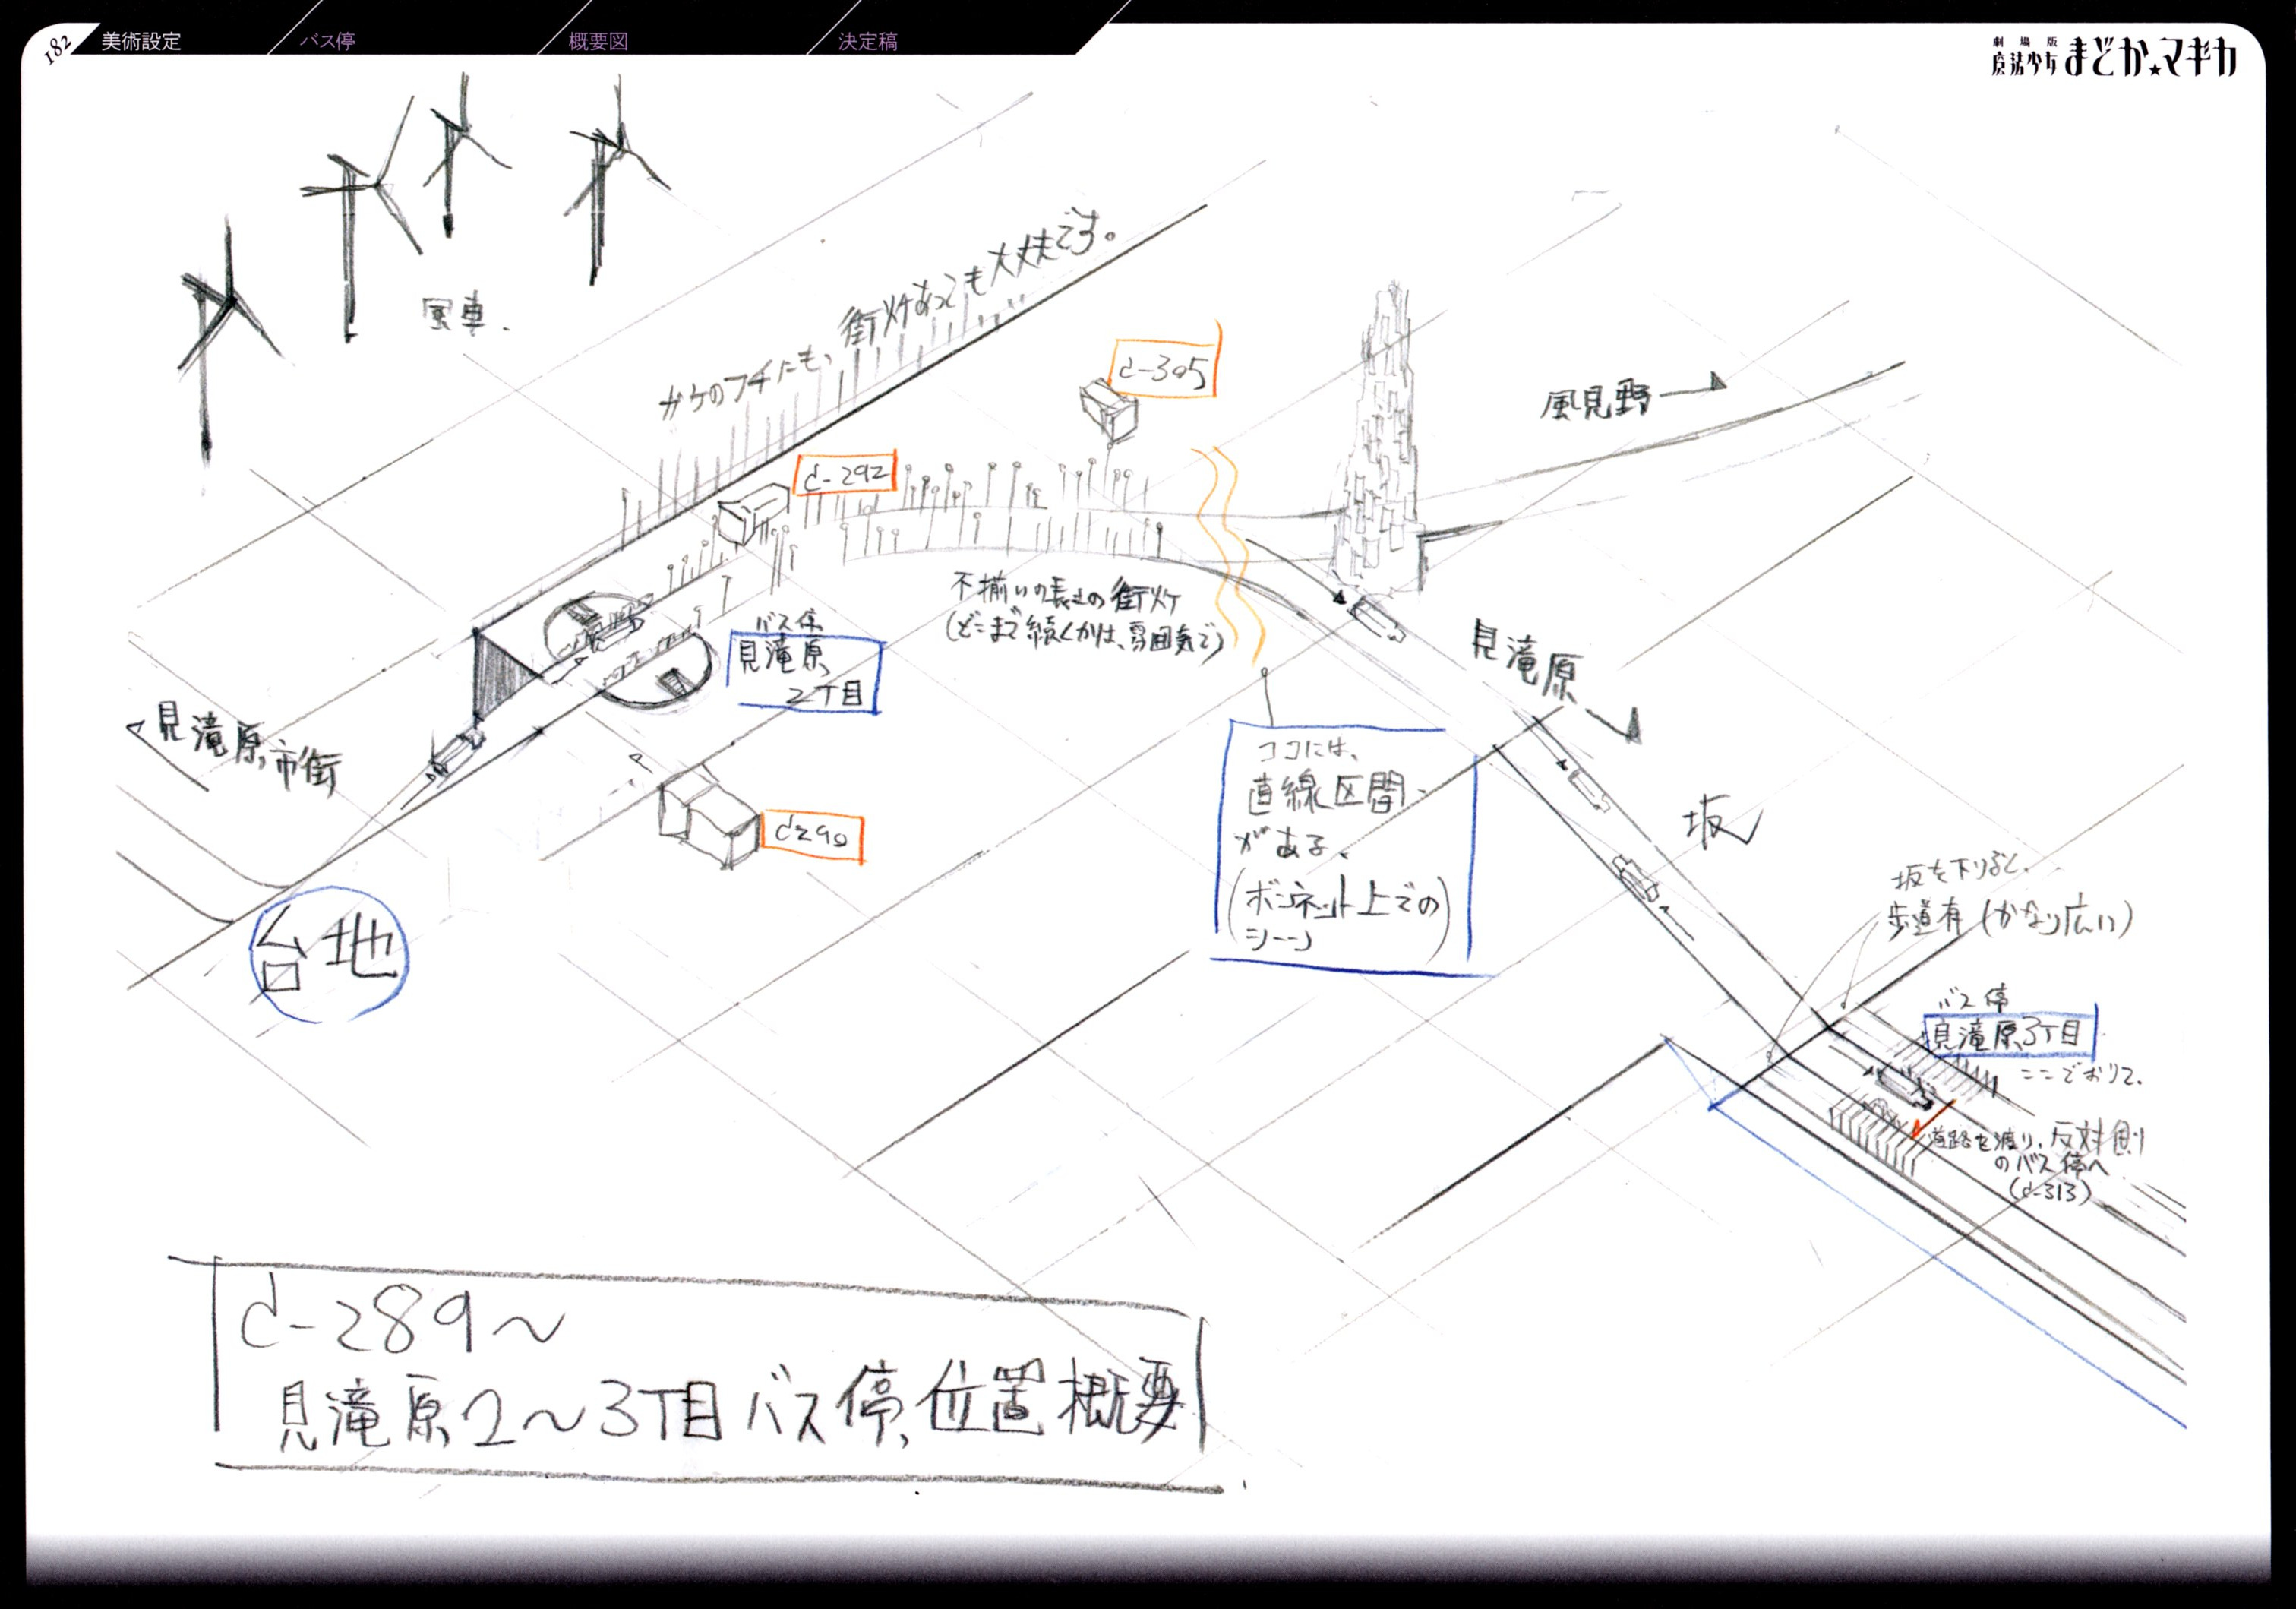 182
美術設定
バス停
概要図
決定稿
劇場版
魔法少女まどか★マギカ
風車.
ガケのフチにも、街灯あっても大丈夫です。
d-305
d-292
風見野
不揃いの長さの街灯
(どこまで続くかは、雰囲気で)
バス停
見滝原
2丁目
見滝原市街
d290
見滝原
ココには、
直線区間
がある、
(ボンネット上での
シーン)
坂
台地
坂を下りると、
歩道有(かなり広い)
バス停
見滝原3丁目
ここでおりて、
道路を渡り、反対側
のバス停へ
(d-313)
d-289~
見滝原2~3丁目バス停、位置概要